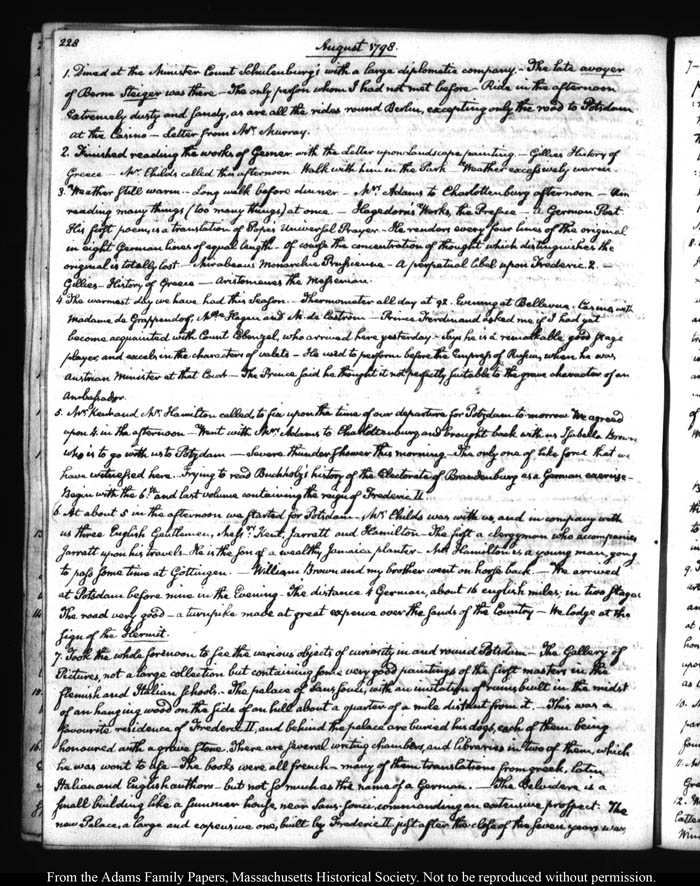 228
August 1798.
1. Dined at the Minister Count Schulenburg's with a large diplomatic company. - The late avoyer
of Berne Steiger was there - The only person whom I had not met before - Ride in the afternoon
extremely dusty and sandy, as are all the rides round Berlin, excepting only the road to Potsdam
at the Casino - Letter from Mr. Murray.
2. Finished reading the works of Gesner, with the Letter upon Landscape painting. - Gillies History of
Greece - Mr. Childs called this afternoon Walk with him in the Park - Weather excessively warm.
3. Weather still warm - Long walk before dinner - Mrs. Adams to Charlottenburg afternoon - Am
reading many things (too many things) at once. - Hagedorn's Works, the Preface - a German Poet
His first poem, is a translation of Popes Universal Prayer. He renders every four lines of the original
in eight German lines of equal length. Of course the concentration of thought which distinguishes the
original is totally lost - Mirabeau's Monarchie Prussienne - A perpetual libel upon Frederic 2. -
Gillies - History of Greece - Aristomenes the Messenian.
4. The warmest day we have had this Season. - Thermometer all day at 92. Evening at Bellevue. Casino with
Madame de Grappendorf, Mlle Hagen and M. de Castrom - Prince Ferdinand asked me if I had yet
become acquainted with Count Cobenzel, who arrived here yesterday - Says he is a remarkable good stage
player, and excels in the character of valets - He used to perform before the Empress of Russia, when he was
Austrian Minister at that Court - The Prince said he thought it not perfectly suitable to the grave character of an
Ambassador.
5. Mr. Kent and Mr. Hamilton called to fix upon the time of our departure for Potsdam to morrow. We agreed
upon 4. in the afternoon - Went with Mrs. Adams to Charlottenburg and brought back with us Isabella Brown
who is to go with us to Potsdam - Severe thunder shower this morning. The only one of like force that we
have witnessed here. Trying to read Buchholz's history of the Electorate of Brandenburg as a German exercise -
Begin with the 6th. and last volume containing the reign of Frederic II.
6. At about 5 in the afternoon we started for Potsdam - Mr. Childs was with us, and in company with
us three English Gentlemen, Messrs. Kent, Jarrett and Hamilton - The first a clergyman who accompanies
Jarrett upon his travels. He is the son of a wealthy Jamaica planter - Mr. Hamilton is a young man, going
to pass some time at Göttingen. - William Brown and my brother went on horse back. - We arrived
at Potsdam before nine in the Evening. The distance 4 German, about 16 english miles; in two stages
The road very good - a turnpike made at great expence over the sands of the Country - We lodge at the
sign of the Hermit.
7. Took the whole forenoon to see the various objects of curiosity in and round Potsdam - The Gallery of
Pictures, not a large collection but containing some very good paintings of the first masters in the
flemish and Italian schools. - The palace of Sans Souci, with an imitation of ruins built in the midst
of an hanging wood on the side of an hill about a quarter of a mile distant from it. - This was a
favourite residence of Frederic II, and behind the palace are buried his dogs, each of them being
honoured with a grave stone. There are several writing chambers, and libraries in two of them, which
he was wont to use - The books were all french - many of them translations from greek, latin,
Italian and English authors - but not so much as the name of a German. - The Belvidere is a
small building like a summer house, near Sans-Souci, commanding an extensive prospect. The
new Palace, a large and expensive one, built by Frederic II just after the close of the seven years war,
From the Adams Family Papers, Massachusetts Historical Society. Not to be reproduced without permission.